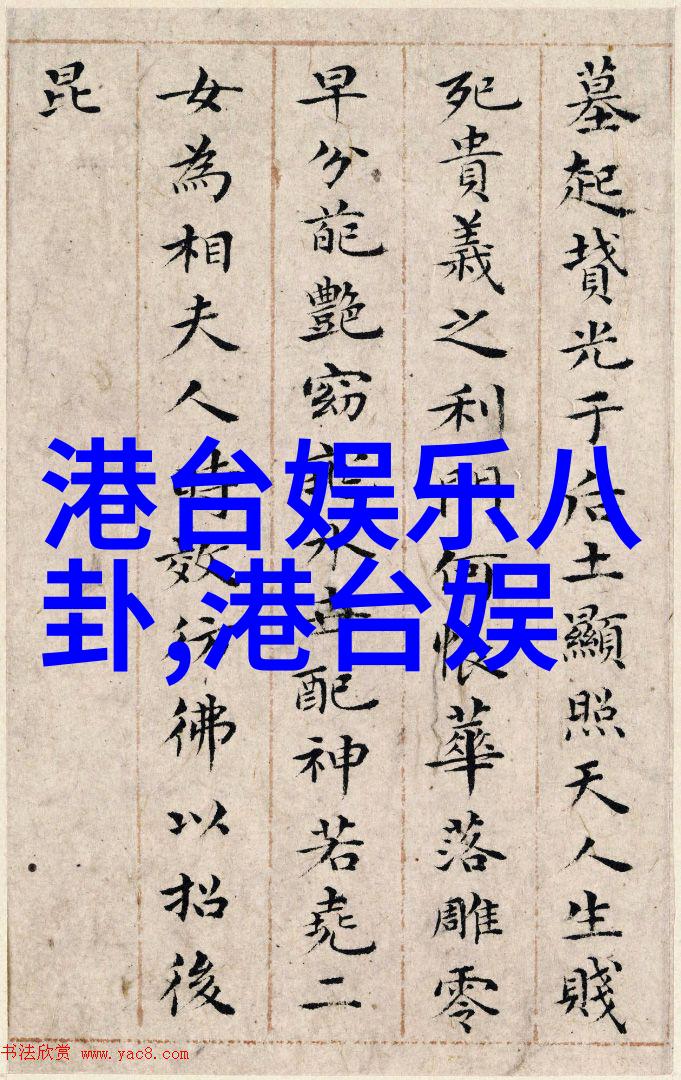 墓起賛光于后土顯照天人生賤
死貴義之利門何恨華落雕零
早分葩艷窈能久世配神若堯二
女為相夫人時效彷彿以招後
昆
港台娱乐八
卦,港台娱
书法欣赏 www.yac8.com